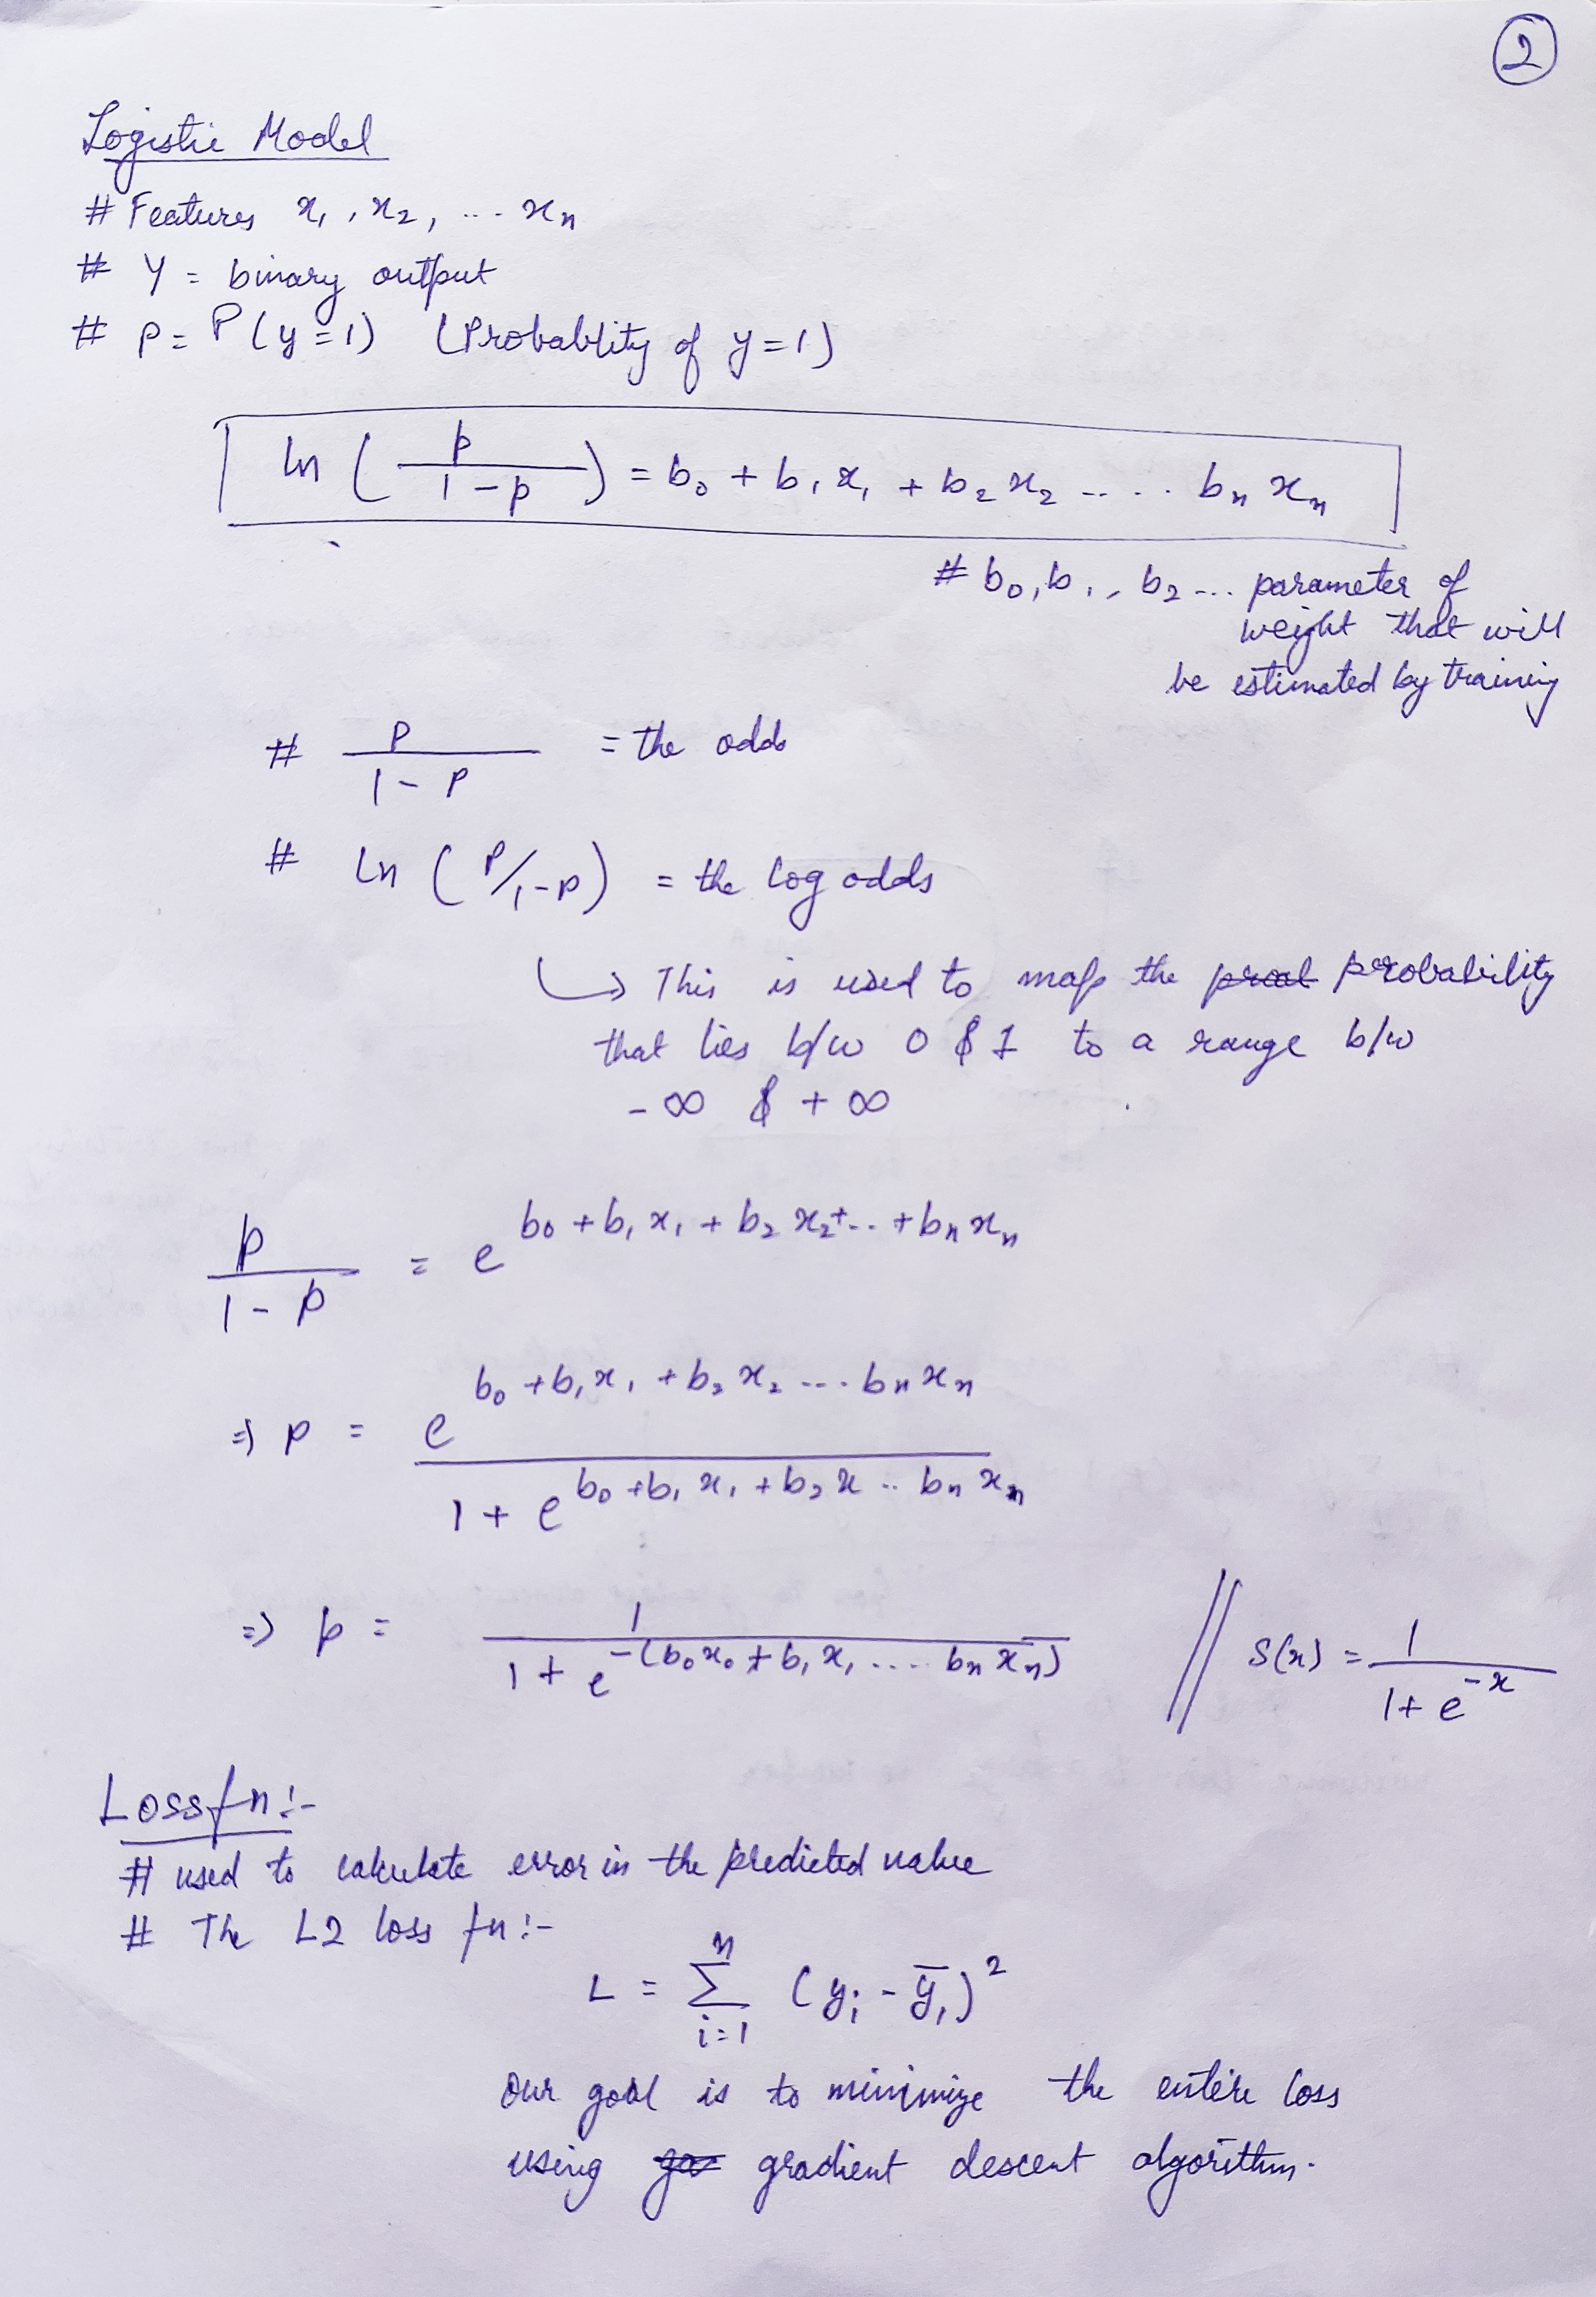 2
Logistic Model
# Features x₁, x₂, ... xₙ
# Y = binary output
# p = P(y=1) (Probablity of y=1)
ln (p / 1-p) = b₀ + b₁x₁ + b₂x₂ ..... bₙxₙ
# b₀, b₁, b₂ ... parameter of
weight that will
be estimated by training
# p / 1-p = the odds
# ln (P/1-p) = the log odds
↳ This is used to map the proal probability
that lies b/w 0 & 1 to a range b/w
-∞ & +∞
p / 1-p = e^(b₀ + b₁x₁ + b₂x₂ + .. + bₙxₙ)
⇒ p = e^(b₀ + b₁x₁ + b₂x₂ .... bₙxₙ) / 1 + e^(b₀ + b₁x₁ + b₂x .. bₙxₙ)
⇒ p = 1 / 1 + e^-(b₀x₀ + b₁x₁ .... bₙxₙ) // S(x) = 1 / 1 + e^-x
Loss fn :-
# used to calculate error in the predicted value
# The L2 loss fn :-
L = Σ_{i=1}^{n} (yᵢ - ȳᵢ)²
Our goal is to minimize the entire loss
using ga gradient descent algorithm.